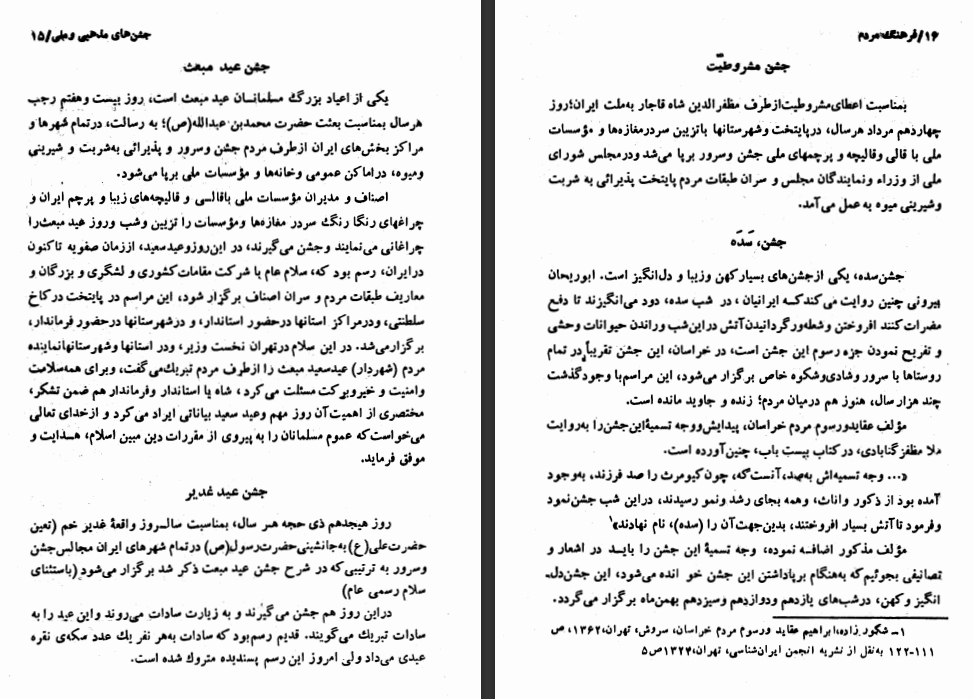 جشن‌های مذهبی و ملی/۱۵
جشن عید مبعث
یکی از اعیاد بزرگ مسلمانان عید مبعث است، روز بیست و هفتم رجب
هرسال بمناسبت بعثت حضرت محمدبن عبدالله(ص)؛ به رسالت، در تمام شهرها و
مراکز بخش‌های ایران از طرف مردم جشن و سرور و پذیرائی به‌شربت و شیرینی
و میوه، در اماکن عمومی و خانه‌ها و مؤسسات ملی برپا می‌شود.
اصناف و مدیران مؤسسات ملی باقالسی و قالیچه‌های زیبا و پرچم ایران و
چراغهای رنگا رنگ سردر مغازه‌ها و مؤسسات را تزیین و شب و روز عید مبعث را
چراغانی می‌نمایند و جشن می‌گیرند، در این روز و عید سعید، از زمان صفویه تاکنون
در ایران، رسم بود که، سلام عام با شرکت مقامات کشوری و لشگری و بزرگان و
معاریف طبقات مردم و سران اصناف برگزار شود، این مراسم در پایتخت در کاخ
سلطنتی، و در مراکز استانها در حضور استاندار، و در شهرستانها در حضور فرماندار،
برگزار می‌شد. در این سلام در تهران نخست وزیر، و در استانها و شهرستانها نماینده
مردم (شهردار) عید سعید مبعث را از طرف مردم تبریك می‌گفت، و برای همه سلامت
و امنیت و خیر و برکت مسئلت می‌کرد، شاه یا استاندار و فرماندار هم ضمن تشکر،
مختصری از اهمیت آن روز مهم و عید سعید بیاناتی ایراد می‌کرد و از خدای تعالی
می‌خواست که عموم مسلمانان را به پیروی از مقررات دین مبین اسلام، هدایت و
موفق فرماید.
جشن عید غدیر
روز هیجدهم ذی حجه هر سال، بمناسبت سالروز واقعهٔ غدیر خم (تعین
حضرت علی(ع) به‌جانشینی حضرت رسول(ص) در تمام شهرهای ایران مجالس جشن
و سرور به ترتیبی که در شرح جشن عید مبعث ذکر شد برگزار می‌شود (باستثنای
سلام رسمی عام)
در این روز هم جشن می‌گیرند و به زیارت سادات می‌روند و این عید را به
سادات تبریك می‌گویند. قدیم رسم بود که سادات به‌هر نفر یك عدد سکه‌ی نقره
عیدی می‌داد ولی امروز این رسم پسندیده متروك شده است.
۱۶/فرهنگ مردم
جشن مشروطیّت
بمناسبت اعطای مشروطیت از طرف مظفرالدین شاه قاجار به‌ملت ایران؛ روز
چهاردهم مرداد هرسال، در پایتخت و شهرستانها با تزیین سردر مغازه‌ها و مؤسسات
ملی با قالی و قالیچه و پرچمهای ملی جشن و سرور برپا می‌شد و در مجلس شورای
ملی از وزراء و نمایندگان مجلس و سران طبقات مردم پایتخت پذیرائی به شربت
و شیرینی میوه به عمل می‌آمد.
جشن، سَدَه
جشن سده، یکی از جشن‌های بسیار کهن و زیبا و دل‌انگیز است. ابوریحان
بیرونی چنین روایت می‌کند که ایرانیان، در شب سده، دود می‌انگیزند تا دفع
مضرات کنند افروختن و شعله‌ور گردانیدن آتش در این شب و راندن حیوانات وحشی
و تفریح نمودن جزء رسوم این جشن است، در خراسان، این جشن تقریباً در تمام
روستاها با سرور و شادی و شکوه خاص برگزار می‌شود، این مراسم با وجود گذشت
چند هزار سال، هنوز هم در میان مردم؛ زنده و جاوید مانده است.
مؤلف عقاید و رسوم مردم خراسان، پیدایش و وجه تسمیهٔ این جشن را به‌روایت
ملا مظفر گنابادی، در کتاب بیست باب، چنین آورده است.
«... وجه تسمیه‌اش به‌صد، آنست که، چون کیومرث را صد فرزند، به‌وجود
آمده بود از ذکور و اناث، و همه بجای رشد و نمو رسیدند، در این شب جشن نمود
و فرمود تا آتش بسیار افروختند، بدین جهت آن را (سده)، نام نهادند»۱
مؤلف مذکور اضافه نموده، وجه تسمیهٔ این جشن را باید در اشعار و
تصانیفی بجوئیم که به‌هنگام برپاداشتن این جشن خوانده می‌شود، این جشن دل‌
انگیز و کهن، در شب‌های یازدهم و دوازدهم و سیزدهم بهمن‌ماه برگزار می‌گردد.
۱- شکورزاده، ابراهیم عقاید و رسوم مردم خراسان، سروش، تهران، ۱۳۶۲، ص
۱۱۱-۱۲۲ به‌نقل از نشریه انجمن ایران‌شناسی، تهران، ۱۳۲۴ ص۵